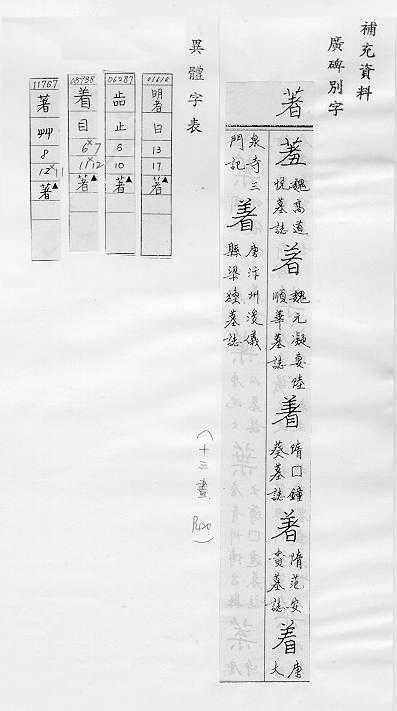 補充資料
廣碑別字
著
羞 魏高道
悅墓誌
著 魏元凝妻陸
順華墓誌
著 隋口鐘
葵墓誌
著 隋范安
貴墓誌
着 唐
大
泉寺三
門記
着 唐汴州浚儀
縣梁
墓誌
(十三畫 P1120)
異體字表
01610
日
13
17
著▲
06287
止
6
10
著▲
08938
着
目
6 7
11 12
著▲
11767
著
艸
8
12 11
著▲